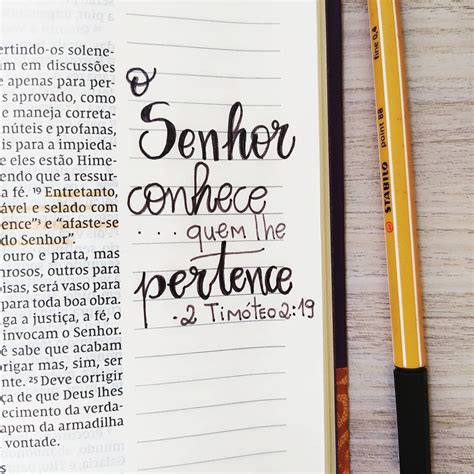 ertindo-os solene-
am em discussões
e apenas para per-
s aprovado, como
e maneja correta-
núteis e profanas,
is para a impieda-
e eles estão Hime-
endo que a ressur-
a fé. 19 Entretanto,
ável e selado com
pence”; e “afaste-se
do Senhor”.
ouro e prata, mas
nrosos, outros para
oisas, será vaso para
para toda boa obra.
iga a justiça, a fé, o
invocam o Senhor.
ê sabe que acabam
rigar mas, sim, ser
ente. 25 Deve corrigir
ça de que Deus lhes
ecimento da verda-
apam da armadilha
vontade.
O
Senhor
conhece
... quem lhe
pertence
. 2 Timóteo 2:19
fine 0,4
point 88
STABILO